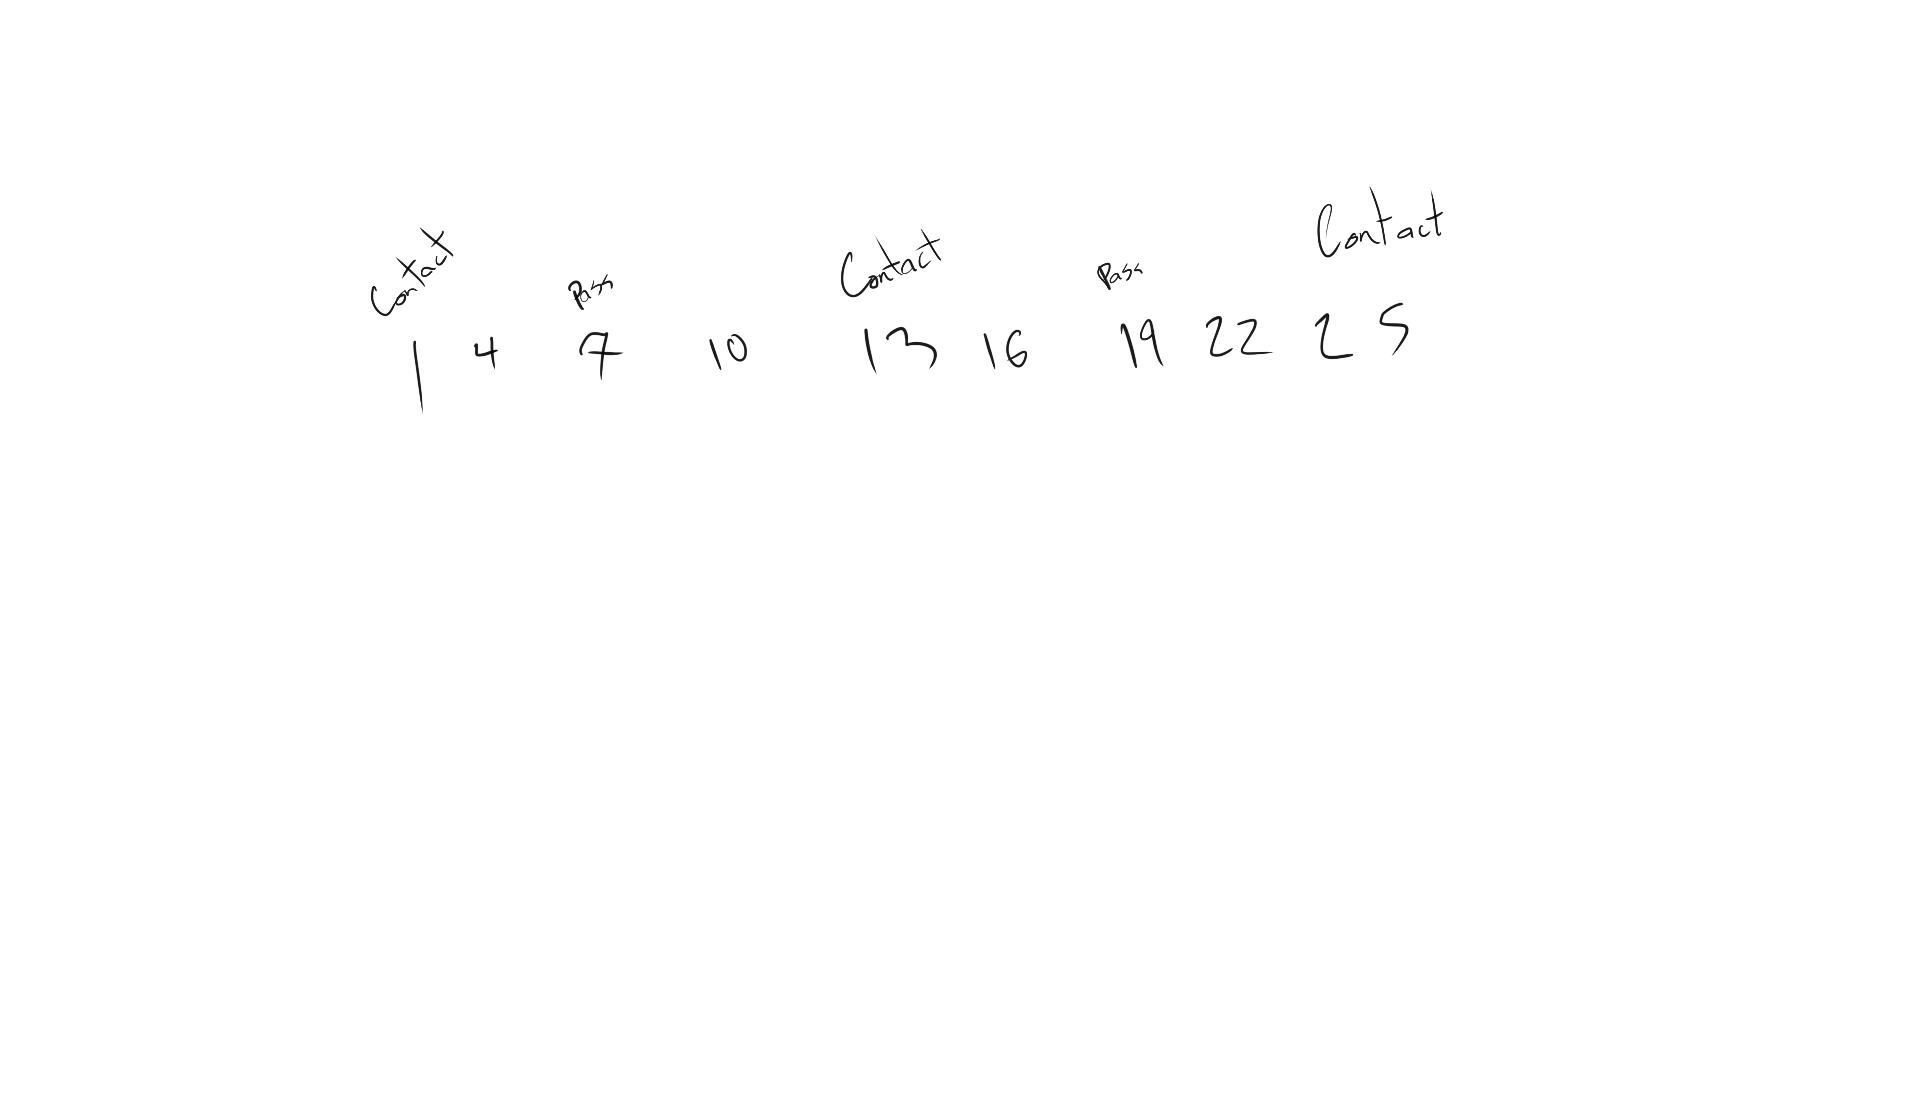 Contact Pass Contact Pass Contact
1 4 7 10 13 16 19 22 25